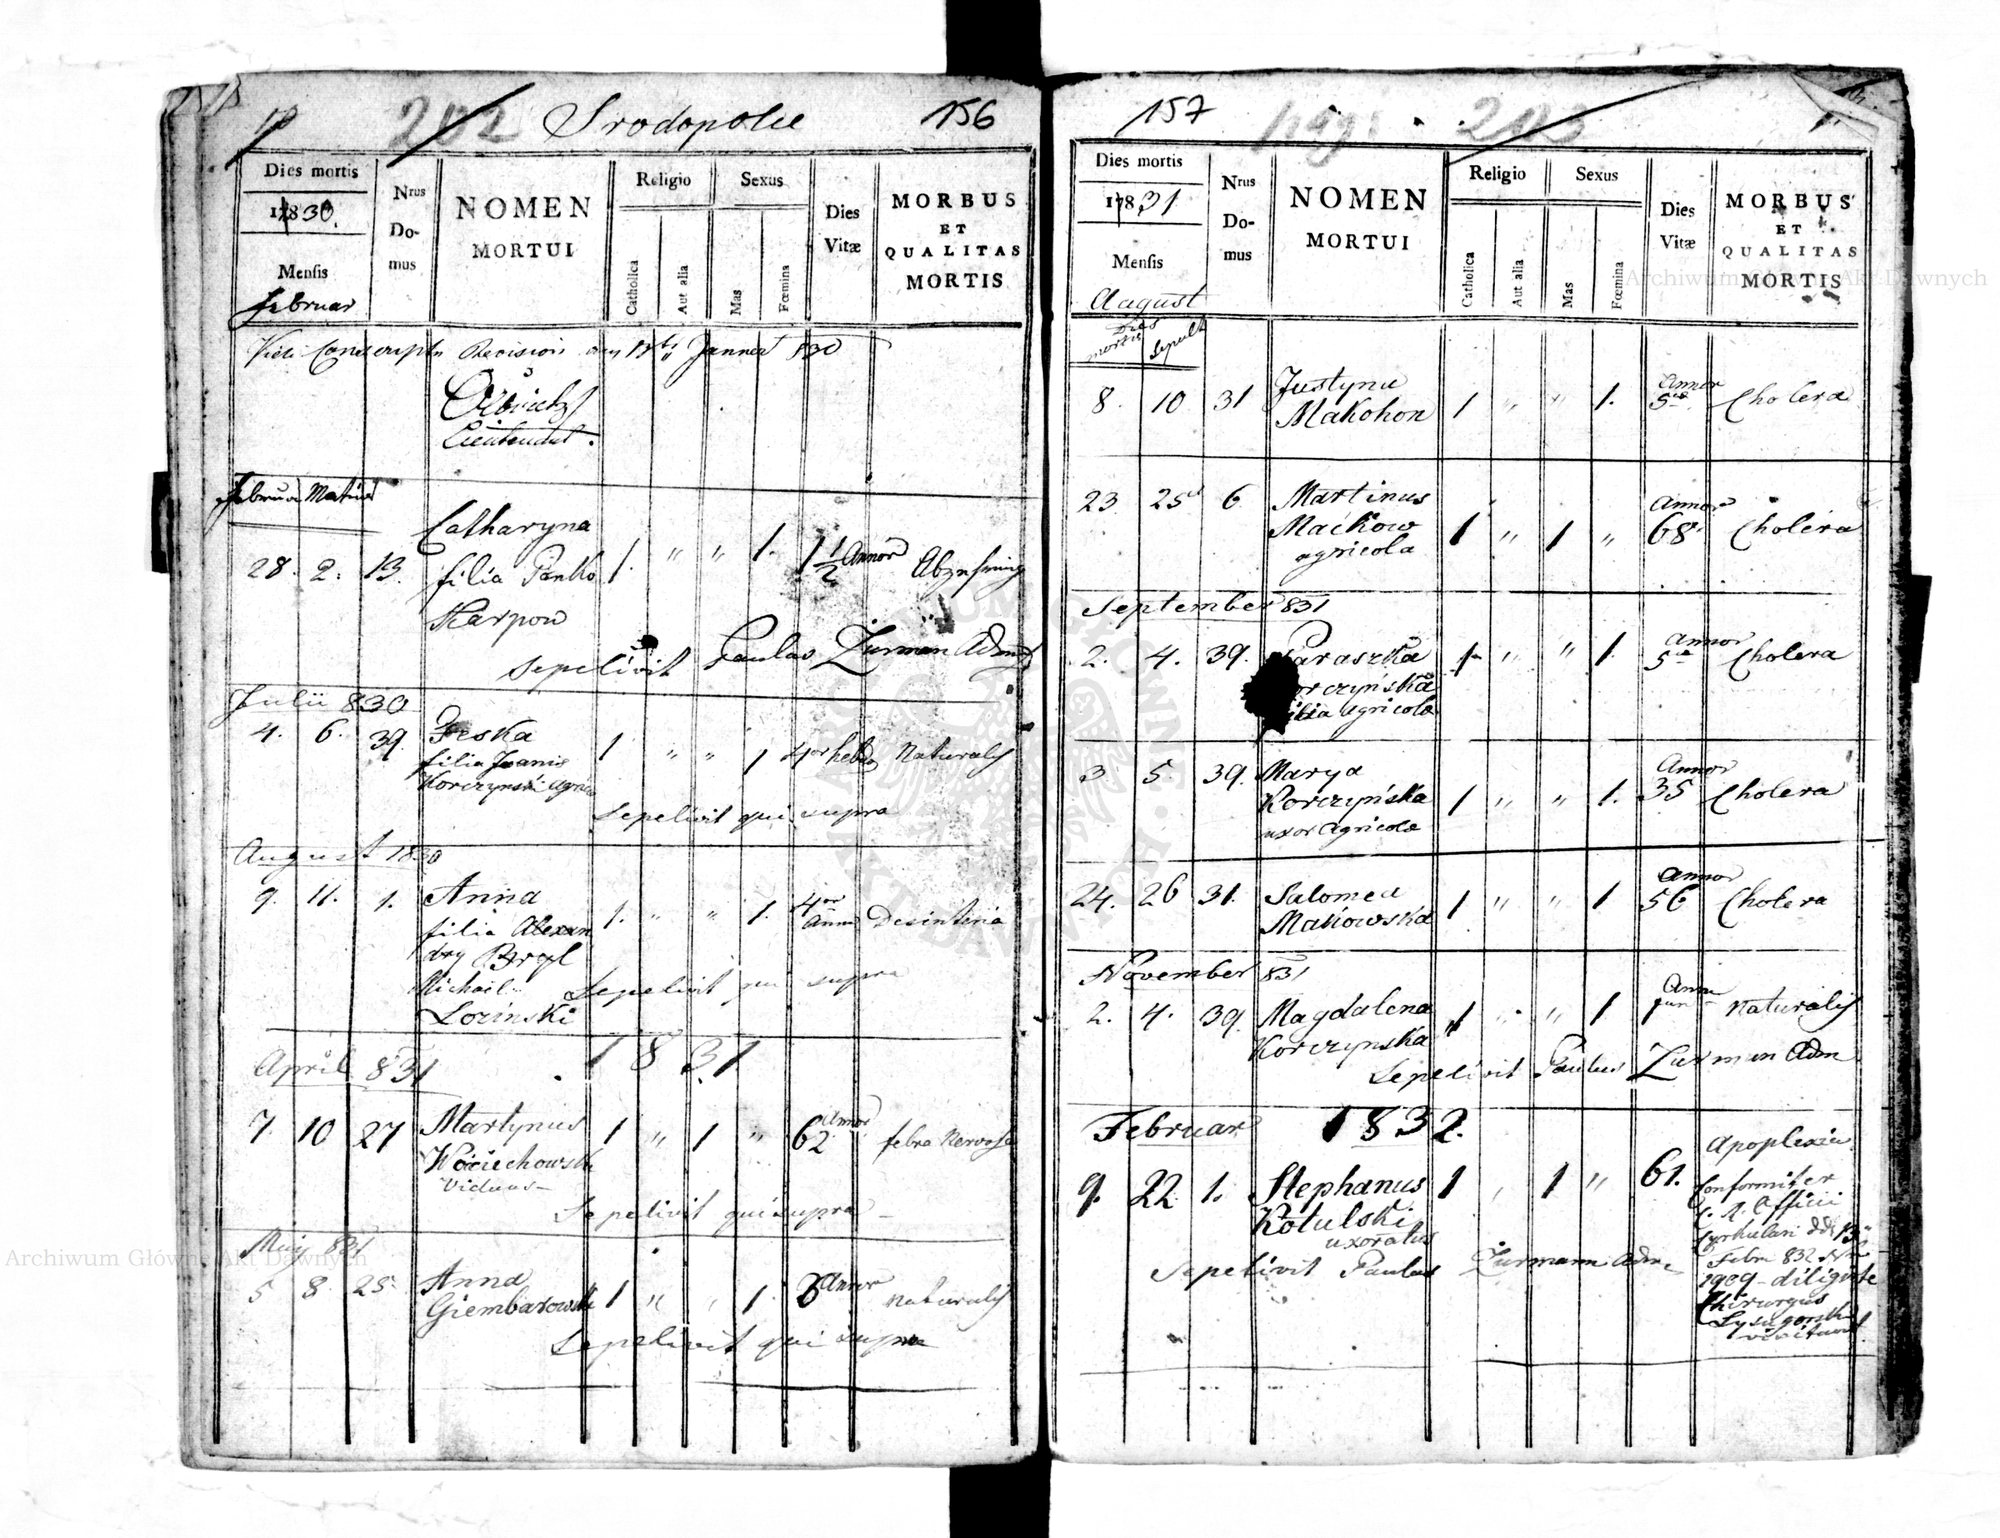 202 Srodopolie 156
Dies mortis
1830.
Mensis
Februar
Nrus
Do-
mus
NOMEN
MORTUI
Religio
Catholica
Aut alia
Sexus
Mas
Fœmina
Dies
Vitæ
MORBUS
ET
QUALITAS
MORTIS
Conscriptn Revision Janner 830
Lieutenant.
Februar Martius
Catharyna
28. 2. 13. filia Panko 1. " " 1. 1 1/2 Annor Abzehrung
Karpow
Sepelivit Paulus Zurman Adm
Julii 830
4. 6. 39. Feska 1 " " 1 4or hebd Naturalis
filia Joanis
Korczynski agric
Sepelivit qui supra
August 1830
9. 11. 1. Anna 1. " " 1. 4or
filia Alexan Annor Desinteria
dry
Michail
Sepelivit qui supra
Lozinski
April 831 1831
7. 10 27 Martynus 1 " 1 " 62 Annor febra Nervosa
Woiciechowski
Viduus
Sepelivit qui supra
May 831
5 8. 25 Anna 1 " " 1. Annor Naturalis
Giembarowska
Sepelivit qui supra
157 203
Dies mortis
1831
Mensis
August
Dies
mortis Sepult
Nrus
Do-
mus
NOMEN
MORTUI
Religio
Catholica
Aut alia
Sexus
Mas
Fœmina
Dies
Vitæ
MORBUS
ET
QUALITAS
MORTIS
8. 10 31 Justyna 1 " " 1. Annor 5 Cholera
Makohon
23 25 6 Martinus 1 " 1 " Annor 68. Cholera
Mackow
agricola
September 831
2. 4. 39. Paraszka 1 " " 1. Annor 5 Cholera
Korczyńska
filia agricola
3. 5. 39. Marya 1 " " 1. Annor 35 Cholera
Korczyńska
uxor agricola
24. 26 31. Salomea 1 " " 1 Annor 56 Cholera
Makowska
November 831
2. 4. 39. Magdalena 1 " " 1 Naturalis
Korczynska
Sepelivit Paulus Zurman Adm
Februar 1832.
Apoplexia
9. 22 1. Stephanus 1 " 1 " 61. Conformiter
Kotulski Officii
uxoratus Cyrkulari
Sepelivit Paulus Zurmann Adm Febr 832
1909 diligente
Chirurgus
visitavit.
Archiwum Główne Akt Dawnych
Archiwum Główne Akt Dawnych
ARCHIWUM GŁÓWNE AKT DAWNYCH